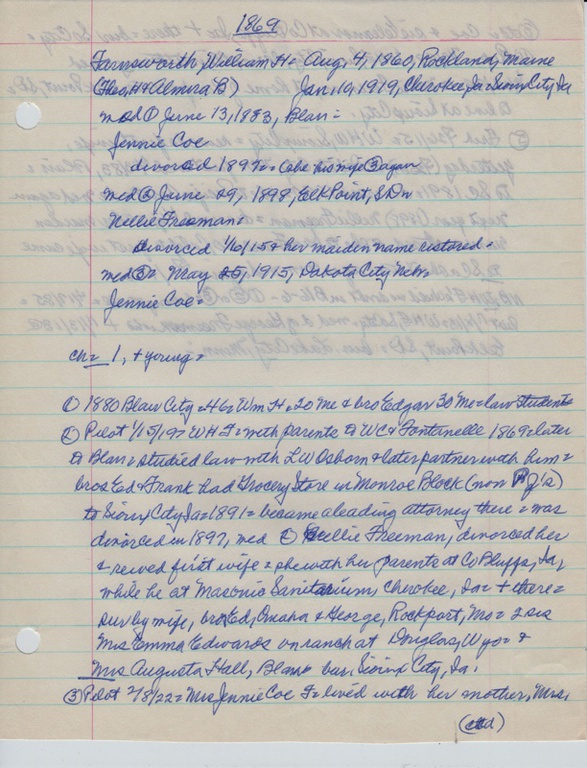 1869
Farnsworth, William H = Aug, 4, 1860, Rockland, Maine
(Theo, H & Almira B) Jan, 19, 1919, Cherokee, Ia = Sioux City, Ia
md ① June 13, 1883, Blair =
Jennie Coe
divorced 1897 = (see his wife ③ again
md ② June 29, 1898, Elk Point, S Dn
Nellie Freeman =
divorced 1/6/15 & her maiden name restored =
md ③ = May 25, 1915, Dakota City Nebr
Jennie Coe =
ch = 1, + young =
① 1880 Blair City = 46 = Wm H = 20 Me & bro Edgar 30 Me = law students
② Pilot 1/15/19 = W H F = with parents to W C & Fontanelle 1869 = later
to Blair = studied law with L W Osborn & later partner with him =
bros Ed & Frank had Grocery Store in Monroe Block (now P J's)
to Sioux City Ia = 1891 = became a leading attorney there = was
divorced in 1897, med ② Nellie Freeman, divorced her
& rewed first wife = she with her parents at Co Bluffs, Ia,
while he at Masonic Sanitarium, Cherokee, Ia = + there =
sur by wife, bros Ed, Omaha & George, Rockport, Mo = 2 sis
Mrs Emma Edwards on ranch at Douglas, Wyo = &
Mrs Augusta Hall, Blair = bur, Sioux City, Ia.
③ Pilot 2/8/22 = Mrs Jennie Coe F = lived with her mother, Mrs,